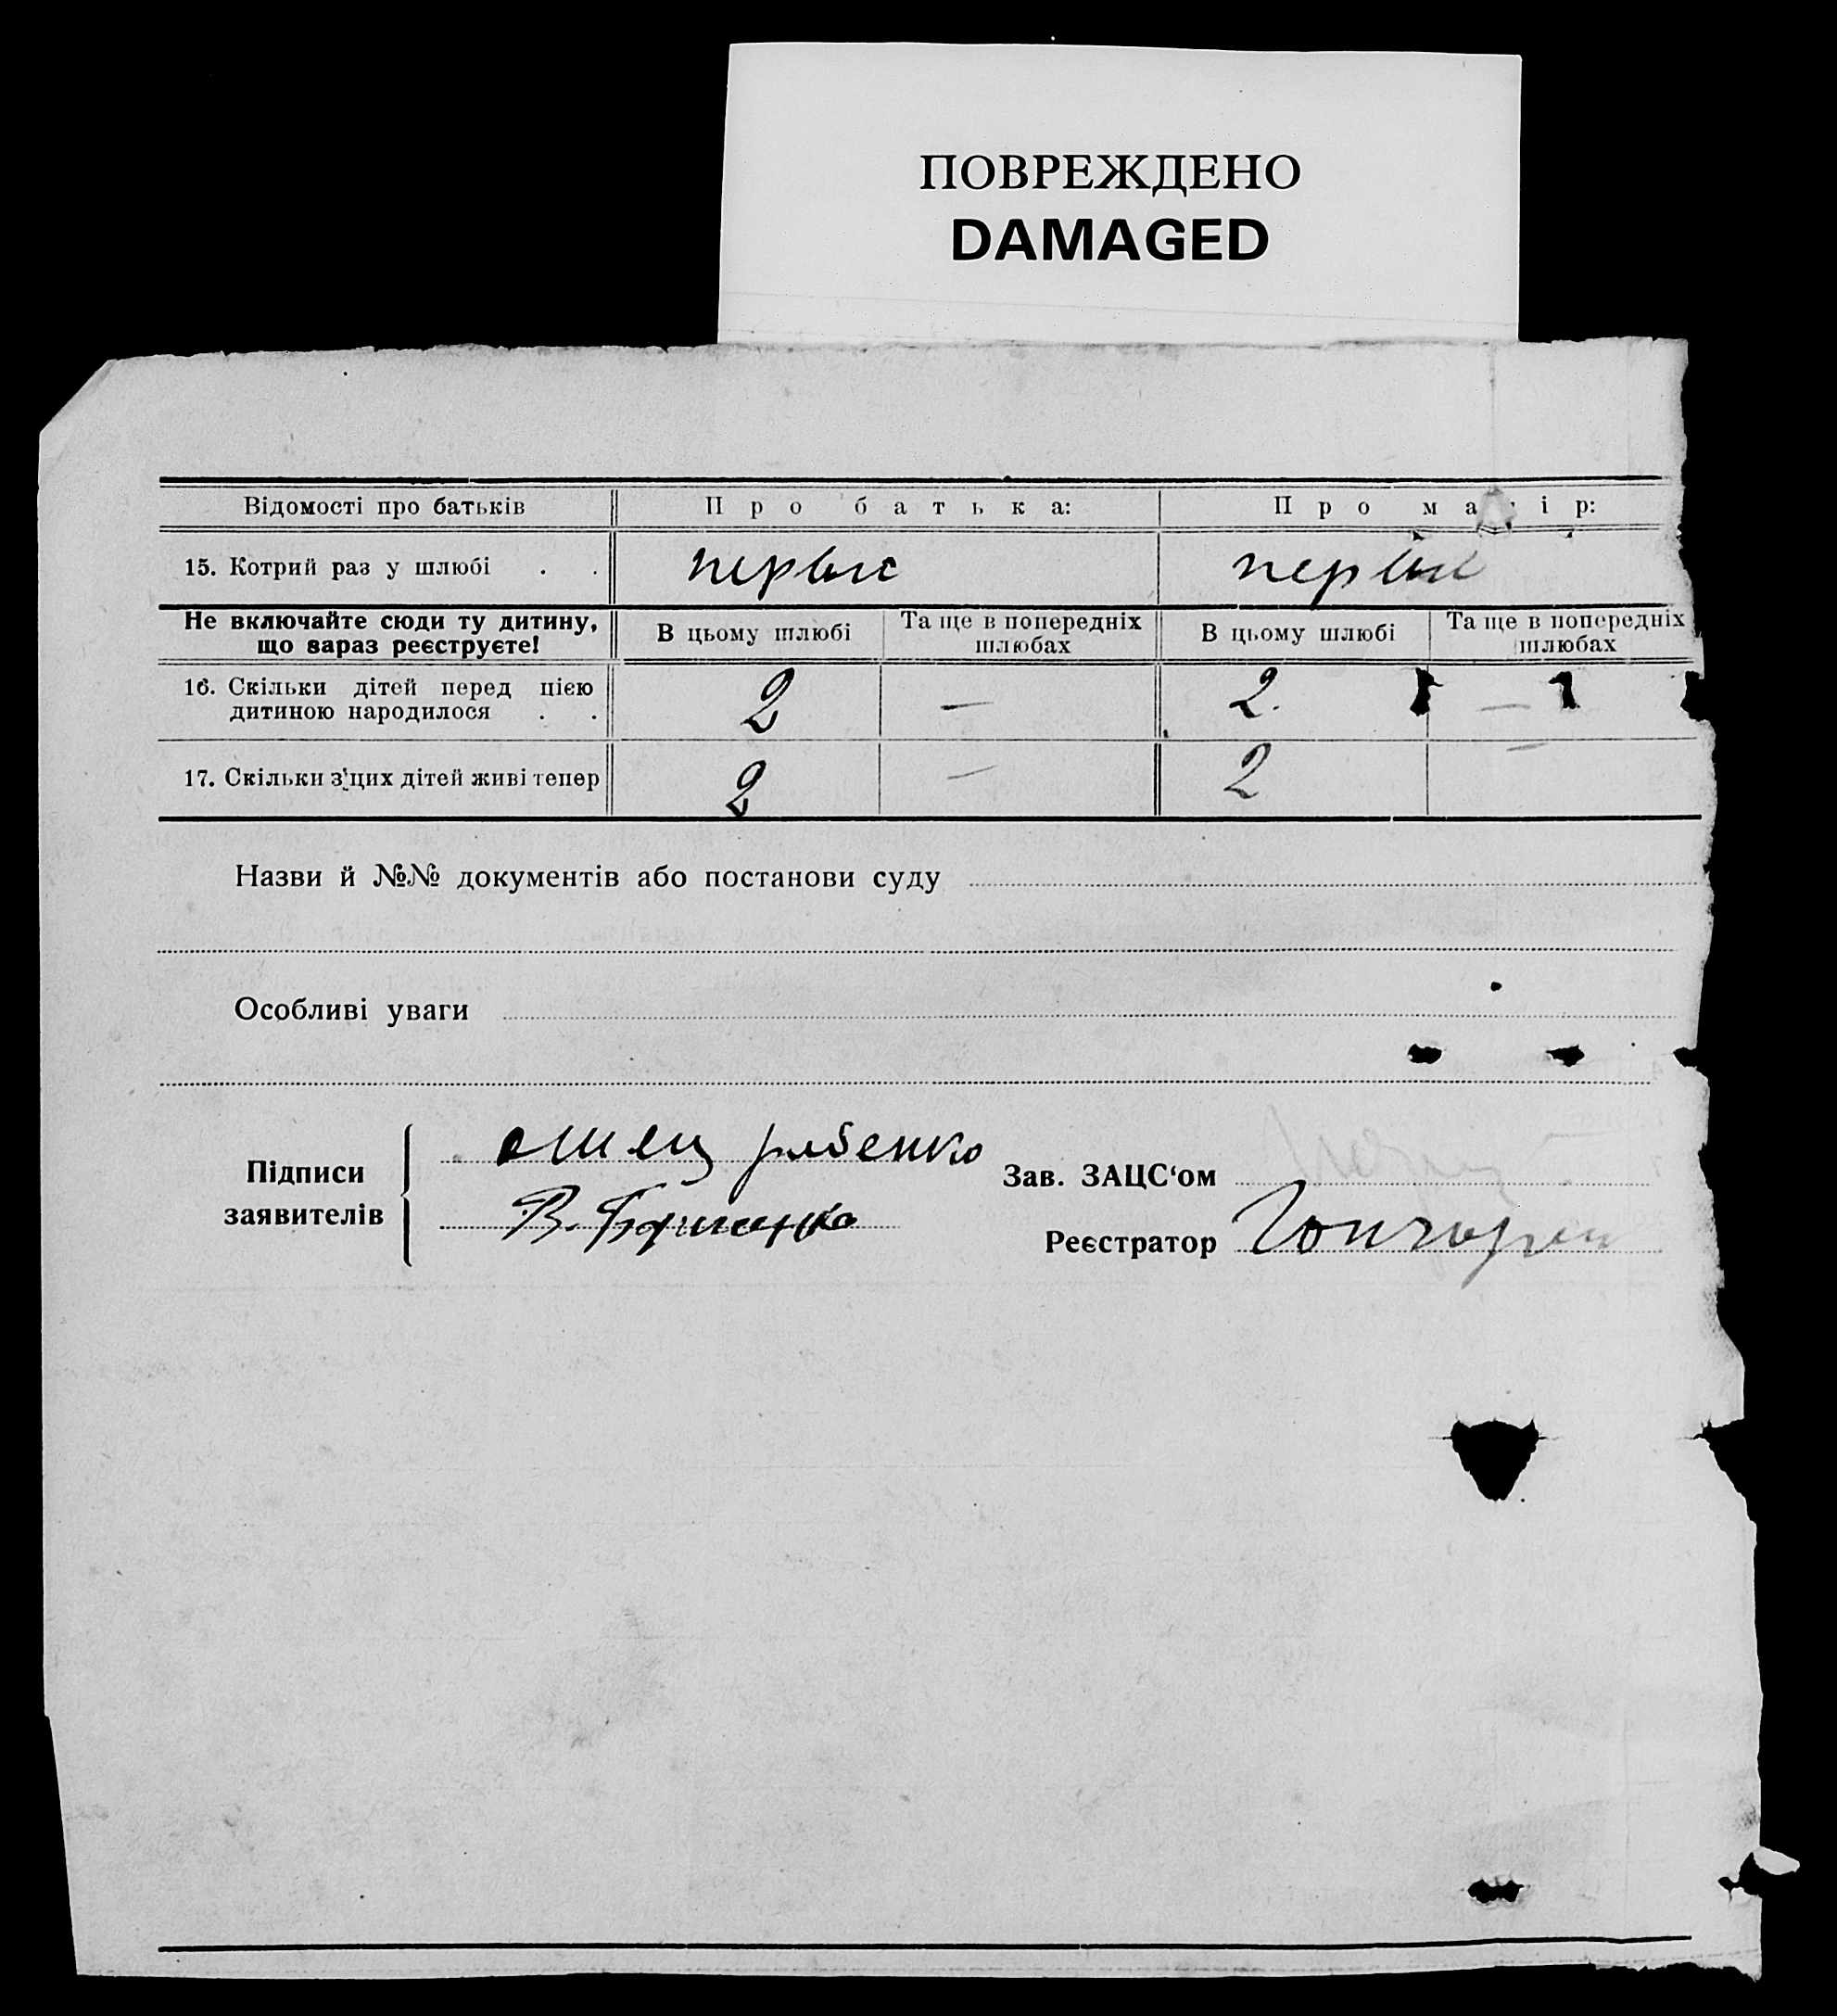 ПОВРЕЖДЕНО
DAMAGED
Відомості про батьків П р о б а т ь к а: П р о м а і р:
15. Котрий раз у шлюбі . . первые первы
Не включайте сюди ту дитину, що зараз реєструєте! В цьому шлюбі Та ще в попередніх шлюбах В цьому шлюбі Та ще в попередніх шлюбах
16. Скільки дітей перед цією
дитиною народилося . . 2 — 2. —
17. Скільки з цих дітей живі тепер 2 — 2 —
Назви й №№ документів або постанови суду
Особливі уваги
Підписи заявителів
отец рябенко
В.
Зав. ЗАЦС‘ом
Реєстратор Гончарен